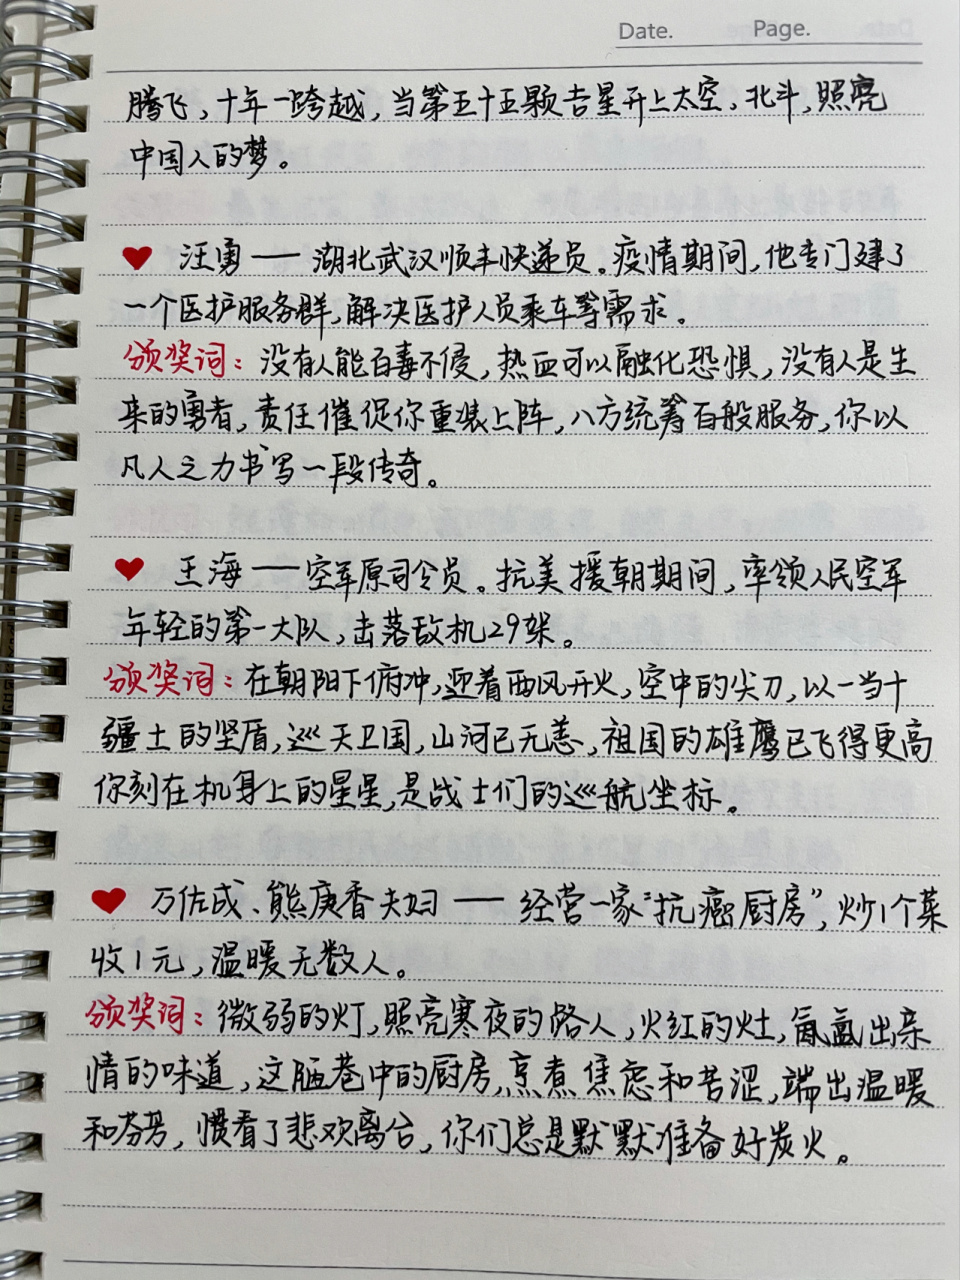 Date. Page.
腾飞，十年一跨越，当第五十五颗吉星升上太空，北斗，照亮
中国人的梦。
汪勇——湖北武汉顺丰快递员。疫情期间，他专门建了
一个医护服务群，解决医护人员乘车等需求。
颁奖词：没有人能百毒不侵，热血可以融化恐惧，没有人是生
来的勇者，责任催促你重装上阵，八方统筹百般服务，你以
凡人之力书写一段传奇。
王海——空军原司令员。抗美援朝期间，率领人民空军
年轻的第一大队，击落敌机29架。
颁奖词：在朝阳下俯冲，迎着西风开火，空中的尖刀，以一当十
疆土的坚盾，巡天卫国，山河已无恙，祖国的雄鹰已飞得更高
你刻在机身上的星星，是战士们的巡航坐标。
万佐成、熊庚香夫妇——经营一家“抗癌厨房”，炒1个菜
收1元，温暖无数人。
颁奖词：微弱的灯，照亮寒夜的路人，火红的灶，氤氲出亲
情的味道，这陋巷中的厨房，烹煮焦虑和苦涩，端出温暖
和芬芳，惯看了悲欢离合，你们总是默默准备好炭火。